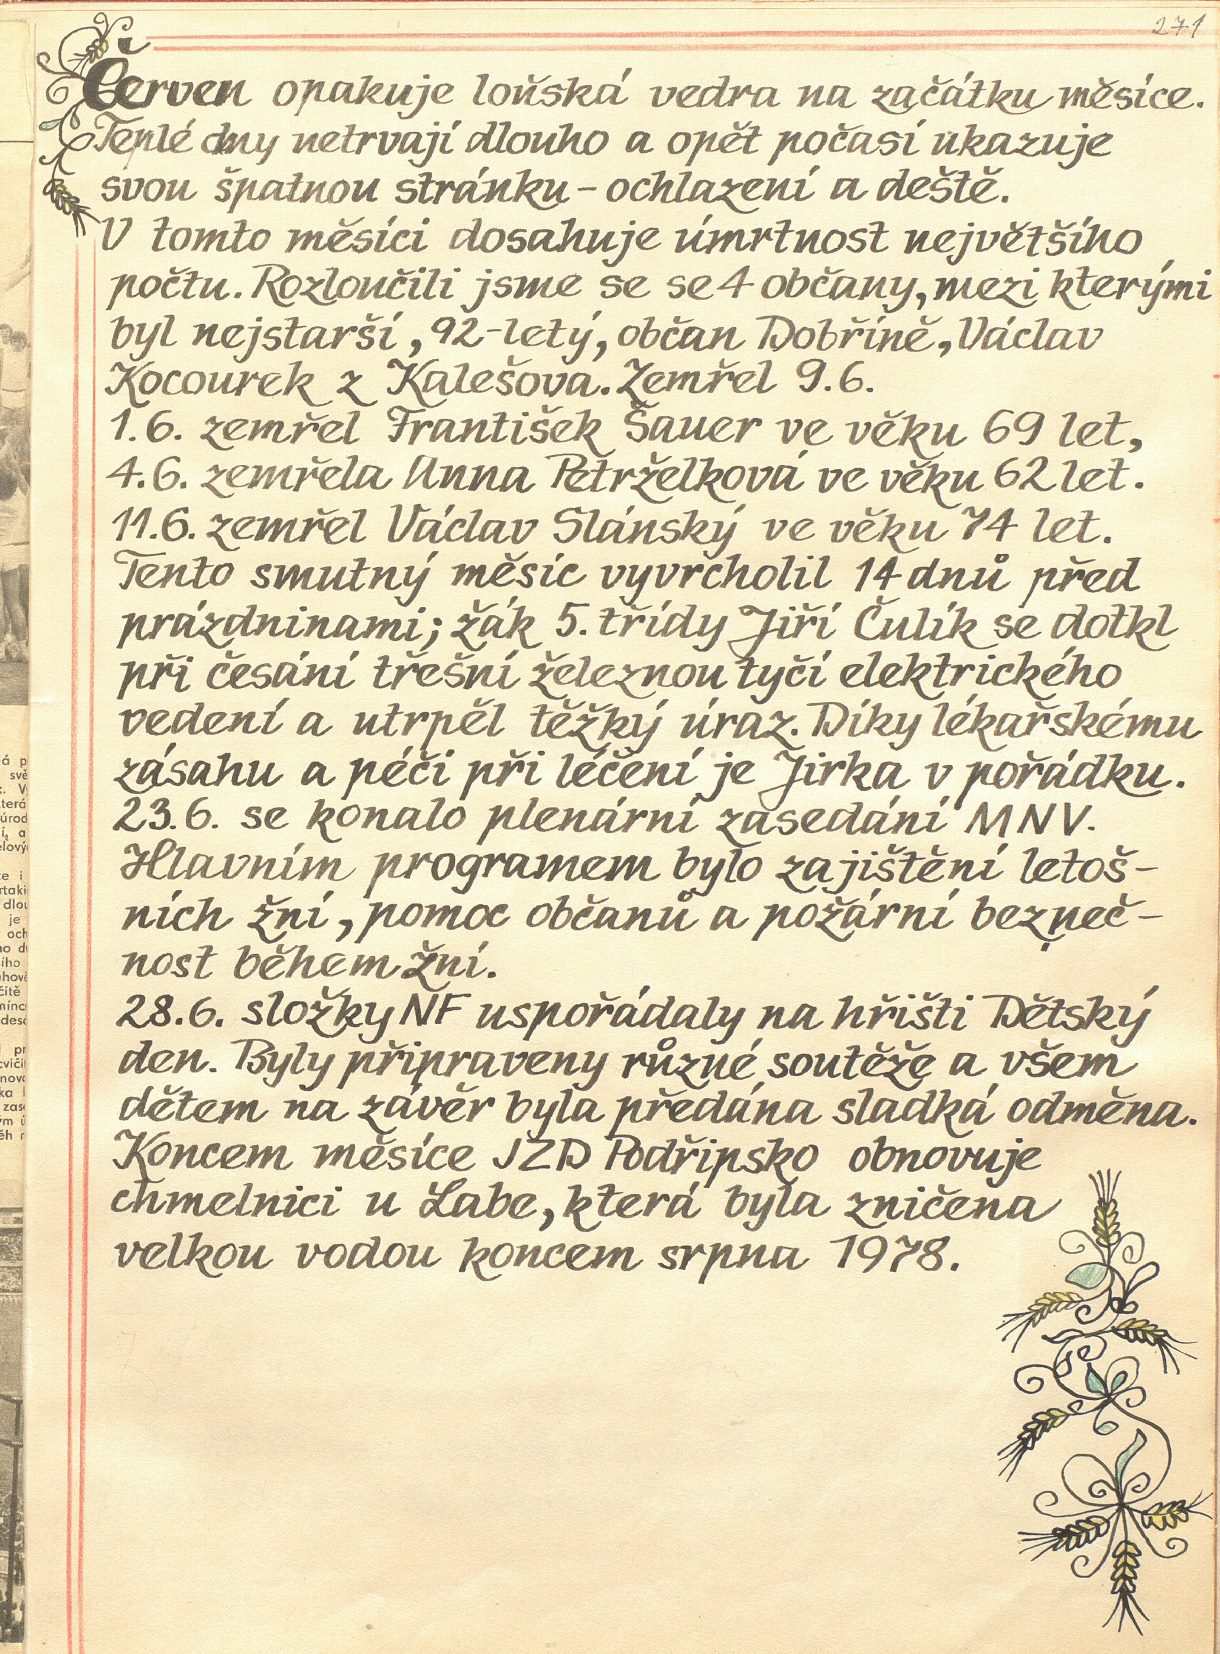 271
Červen opakuje loňská vedra na začátku měsíce.
Teplé dny netrvají dlouho a opět počasí ukazuje
svou špatnou stránku – ochlazení a deště.
V tomto měsíci dosahuje úmrtnost největšího
počtu. Rozloučili jsme se se 4 občany, mezi kterými
byl nejstarší, 92-letý, občan Dobříně, Václav
Kocourek z Kalešova. Zemřel 9.6.
1.6. zemřel František Šauer ve věku 69 let,
4.6. zemřela Anna Petrželková ve věku 62 let.
11.6. zemřel Václav Slánský ve věku 74 let.
Tento smutný měsíc vyvrcholil 14 dnů před
prázdninami; žák 5. třídy Jiří Čulík se dotkl
při česání třešní železnou tyčí elektrického
vedení a utrpěl těžký úraz. Díky lékařskému
zásahu a péči při léčení je Jirka v pořádku.
23.6. se konalo plenární zasedání MNV.
Hlavním programem bylo zajištění letoš-
ních žní, pomoc občanů a požární bezpeč-
nost během žní.
28.6. složky NF uspořádaly na hřišti Dětský
den. Byly připraveny různé soutěže a všem
dětem na závěr byla předána sladká odměna.
Koncem měsíce JZD Podřipsko obnovuje
chmelnici u Labe, která byla zničena
velkou vodou koncem srpna 1978.